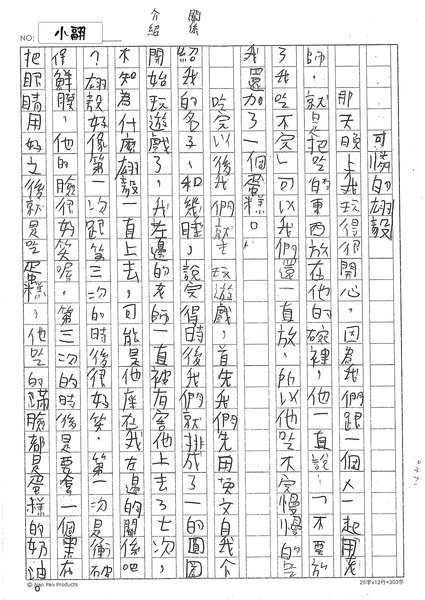 NO:
小翻
可憐的翃毅
那天晚上我玩得很開心，因為我們跟一個人一起用老
師，就是把吃的東西放在他的碗裡，他一直說：「不要放
了我吃不完」可以我們還一直放，所以他吃不完慢慢的吃
我還加了一個蛋糕。
吃完以後我們就去玩遊戲，首先我們先用英文自我介
紹我的名子，和幾歲，說完得時後我們就排成了一的圓圈
開始玩遊戲了，我左邊的老師一直被有害他上去了七次，
不知為什麼翃毅一直上去，可能是他座在我左邊的關係吧
？翃毅好像第一次跟第三次的時後很好笑，第一次是衝破
保鮮膜，他的臉很好笑喔，第三次的時後是要拿一個果在
把眼睛用好之後就是吃蛋糕，他吃的滿臉都是蛋糕的奶油
。
介紹
關係
Nan Pao Products
25字x12行=300字